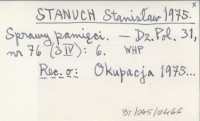 STANUCH Stanisław 1975. x
Sprawy pamięci. — Dz. Pol. 31,
nr 76 (3 IV): 6. WHP
Rec. o: Okupacja 1975...
31/045/0466